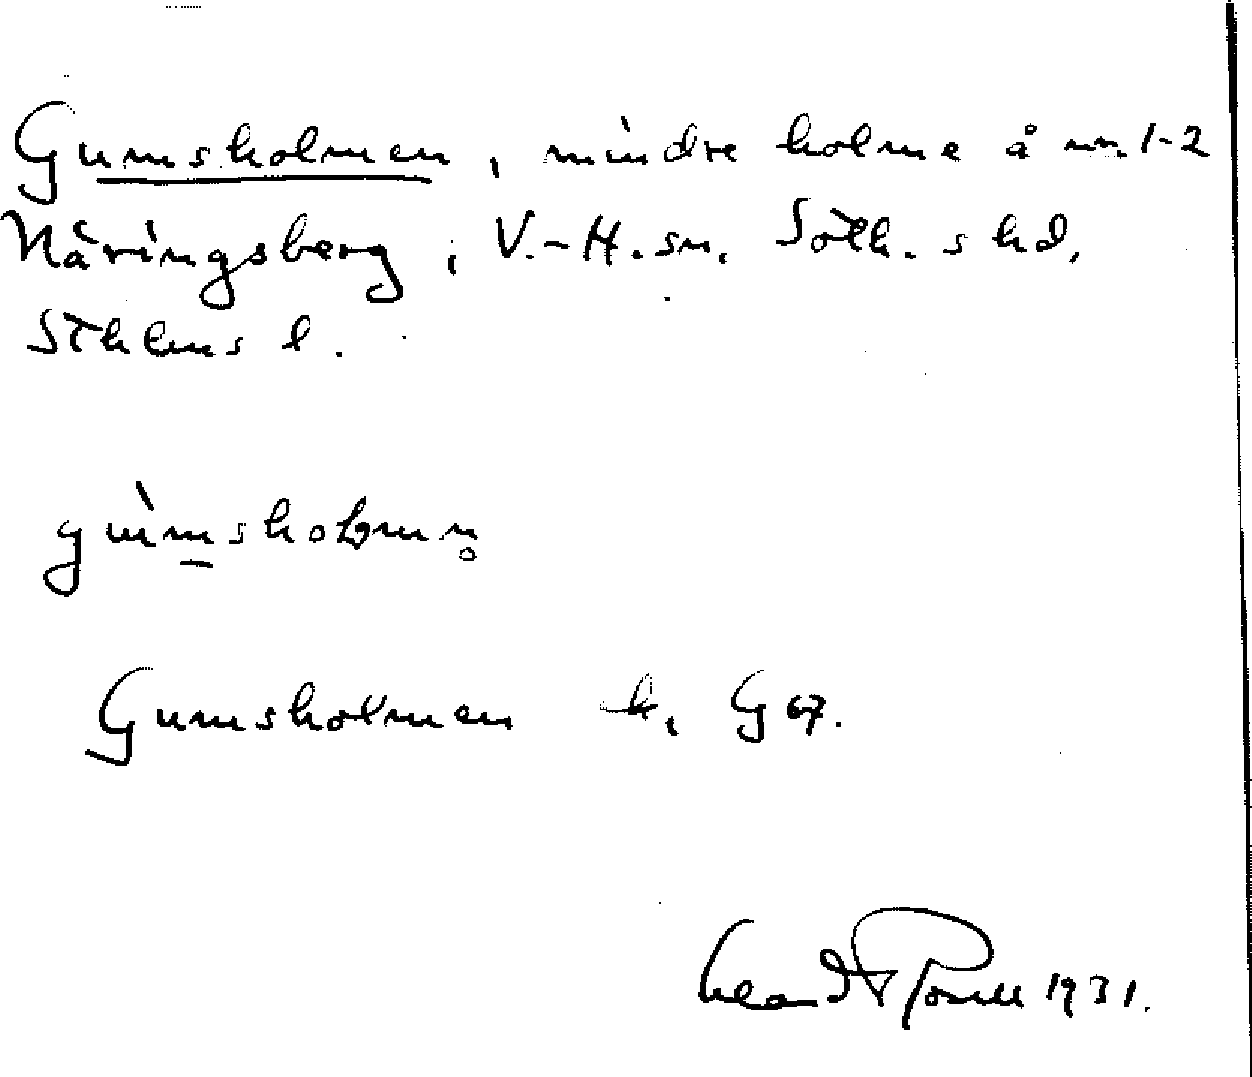 Gumsholmen, mindre holme å nr. 1-2
Näringsberg, V.-H. sn. Soth. s hd,
Sthlms l.
gùmsholmn̥
Gumsholmen h, G 67.
1931.